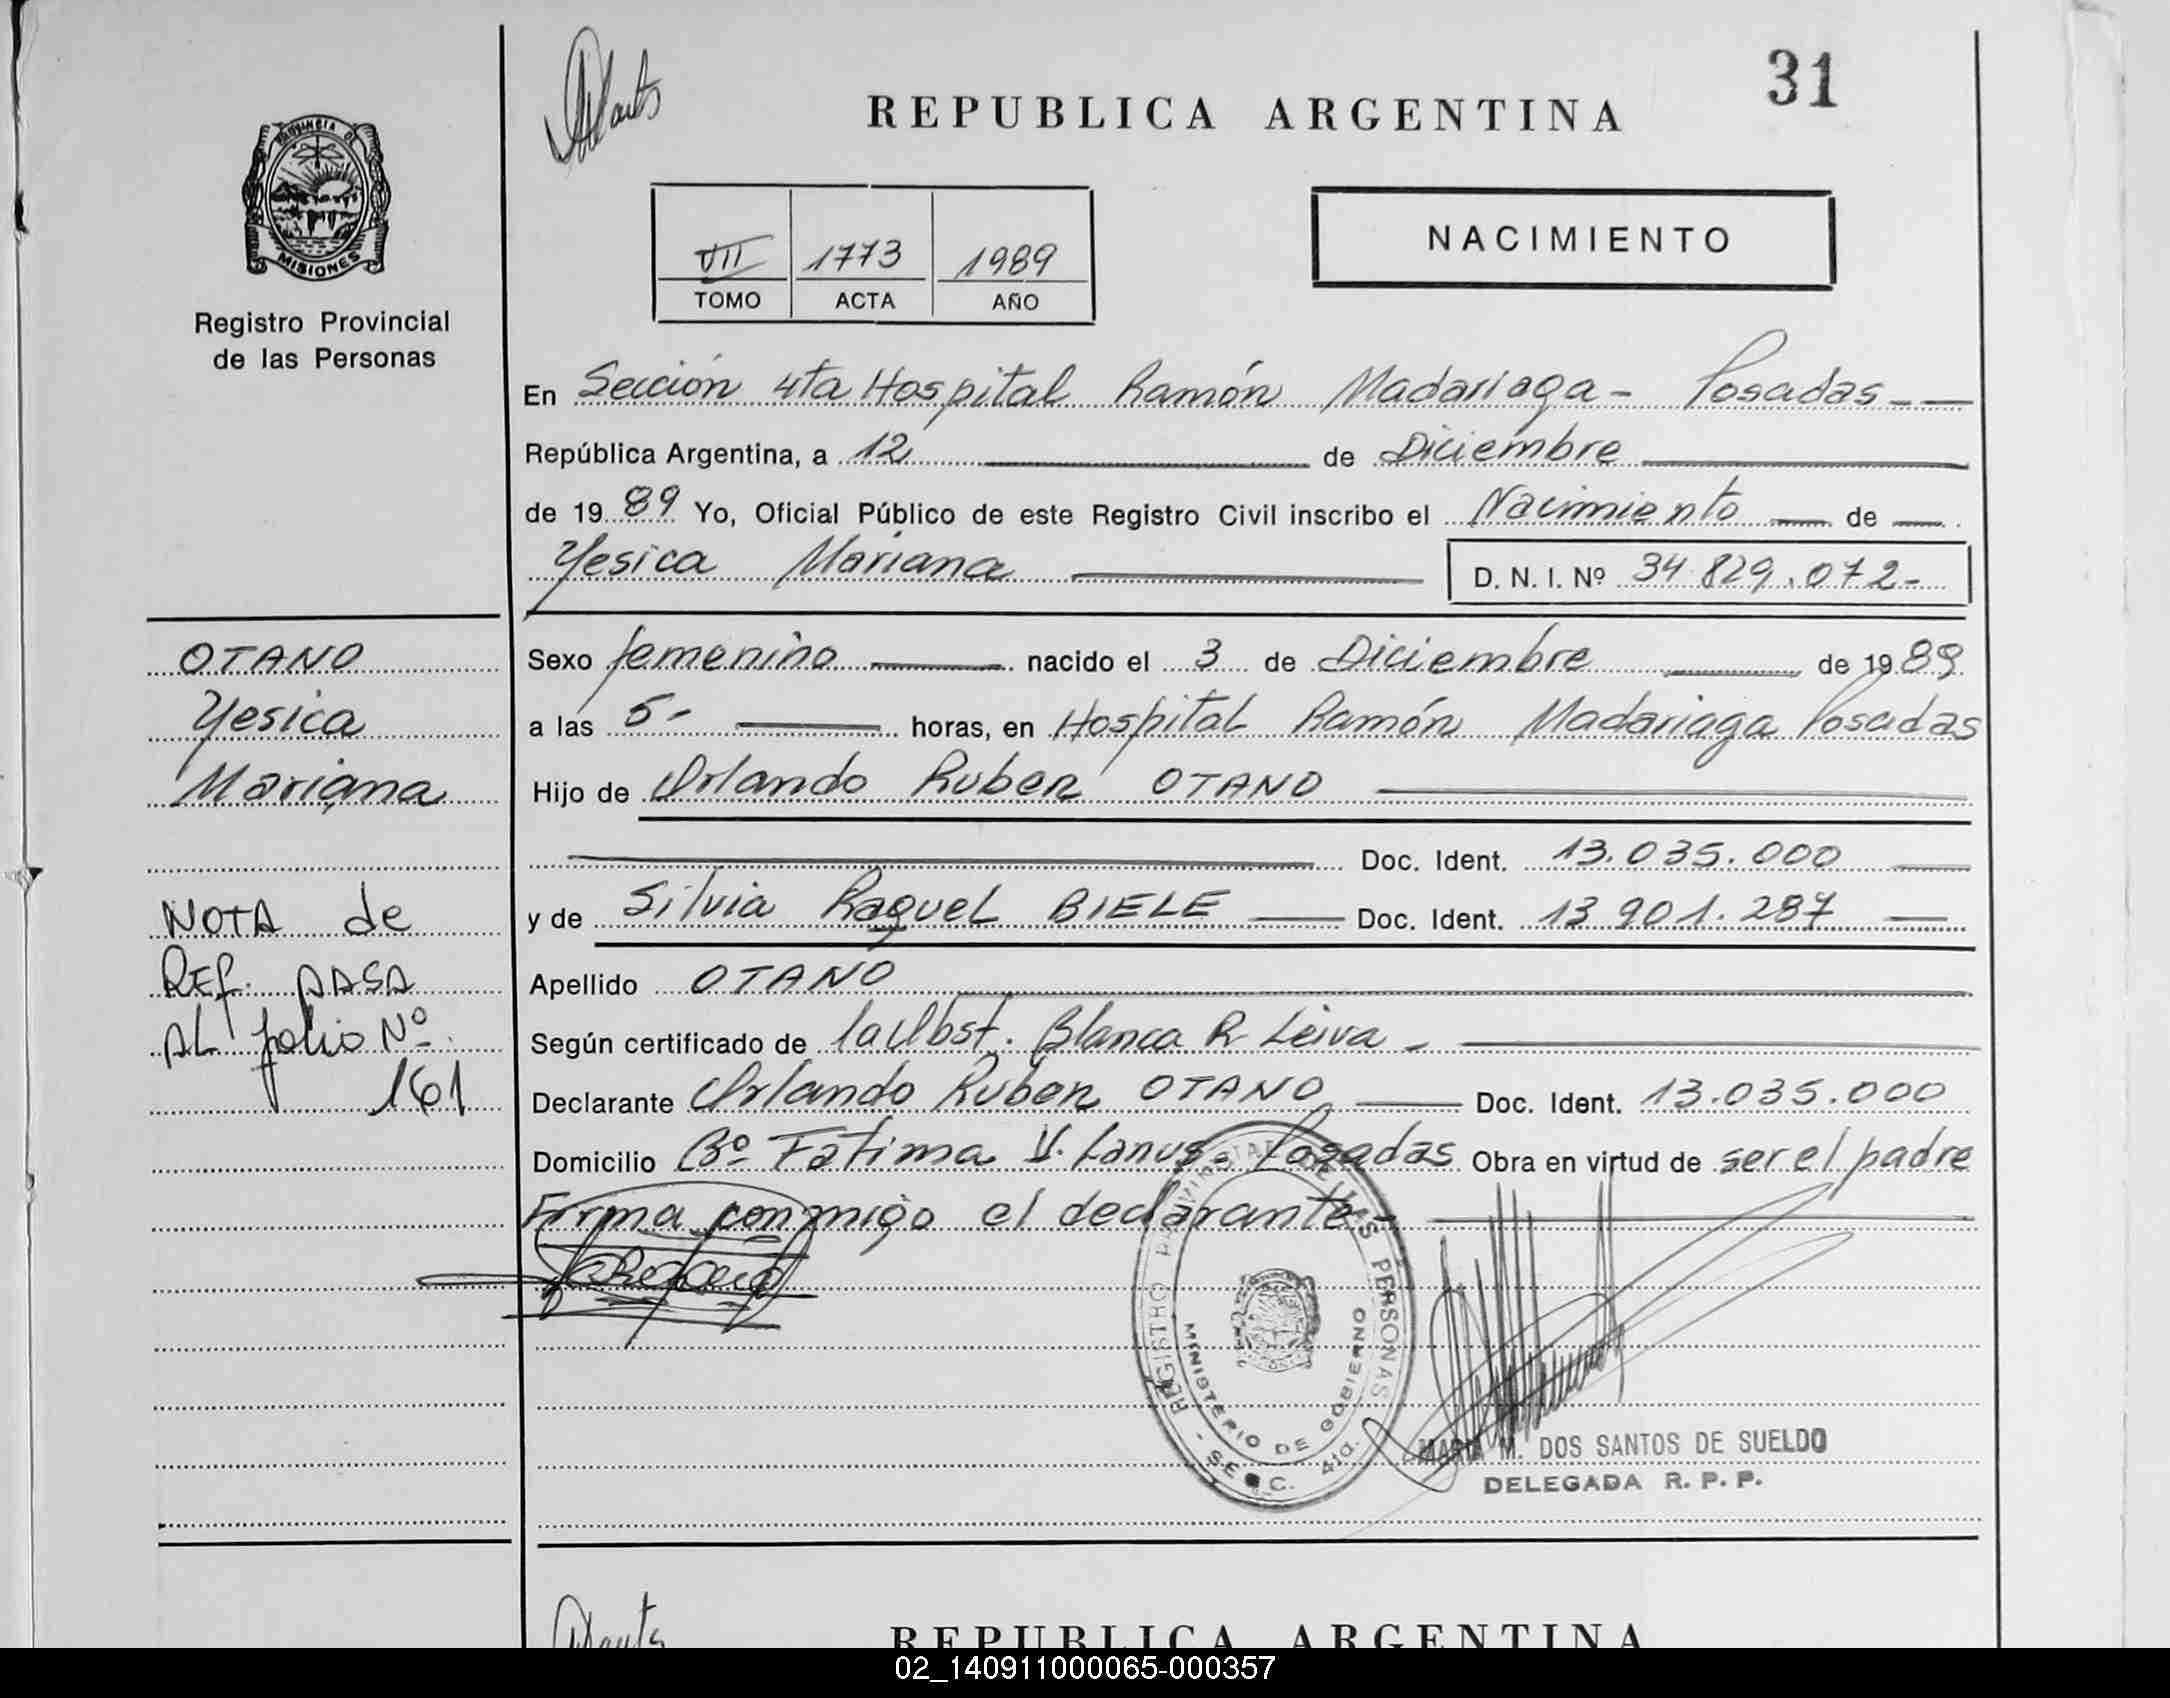 31
REPUBLICA ARGENTINA
PROVINCIA DE
MISIONES
Registro Provincial
de las Personas
VII 1773 1989
TOMO ACTA AÑO
NACIMIENTO
En Sección 4ta Hospital Ramón Madariaga - Posadas
República Argentina, a 12 de Diciembre
de 1989 Yo, Oficial Público de este Registro Civil inscribo el Nacimiento de
Yesica Mariana
D. N. I. Nº 34.829.072-
OTANO
Yesica
Mariana
NOTA de
REF. PASA
AL folio Nº
161
Sexo femenino nacido el 3 de Diciembre de 1989
a las 5- horas, en Hospital Ramón Madariaga Posadas
Hijo de Orlando Ruben OTANO
Doc. Ident. 13.035.000
y de Silvia Raquel BIELE Doc. Ident. 13.901.287
Apellido OTANO
Según certificado de la Obst. Blanca R. Leiva -
Declarante Orlando Ruben OTANO Doc. Ident. 13.035.000
Domicilio Bº Fatima V. Lanus - Posadas Obra en virtud de ser el padre
Firma conmigo el declarante-
REGISTRO PROVINCIAL DE LAS PERSONAS
MINISTERIO DE GOBIERNO
- SECC. 4ta.
MARIA M. DOS SANTOS DE SUELDO
DELEGADA R. P. P.
REPUBLICA ARGENTINA
02_140911000065-000357